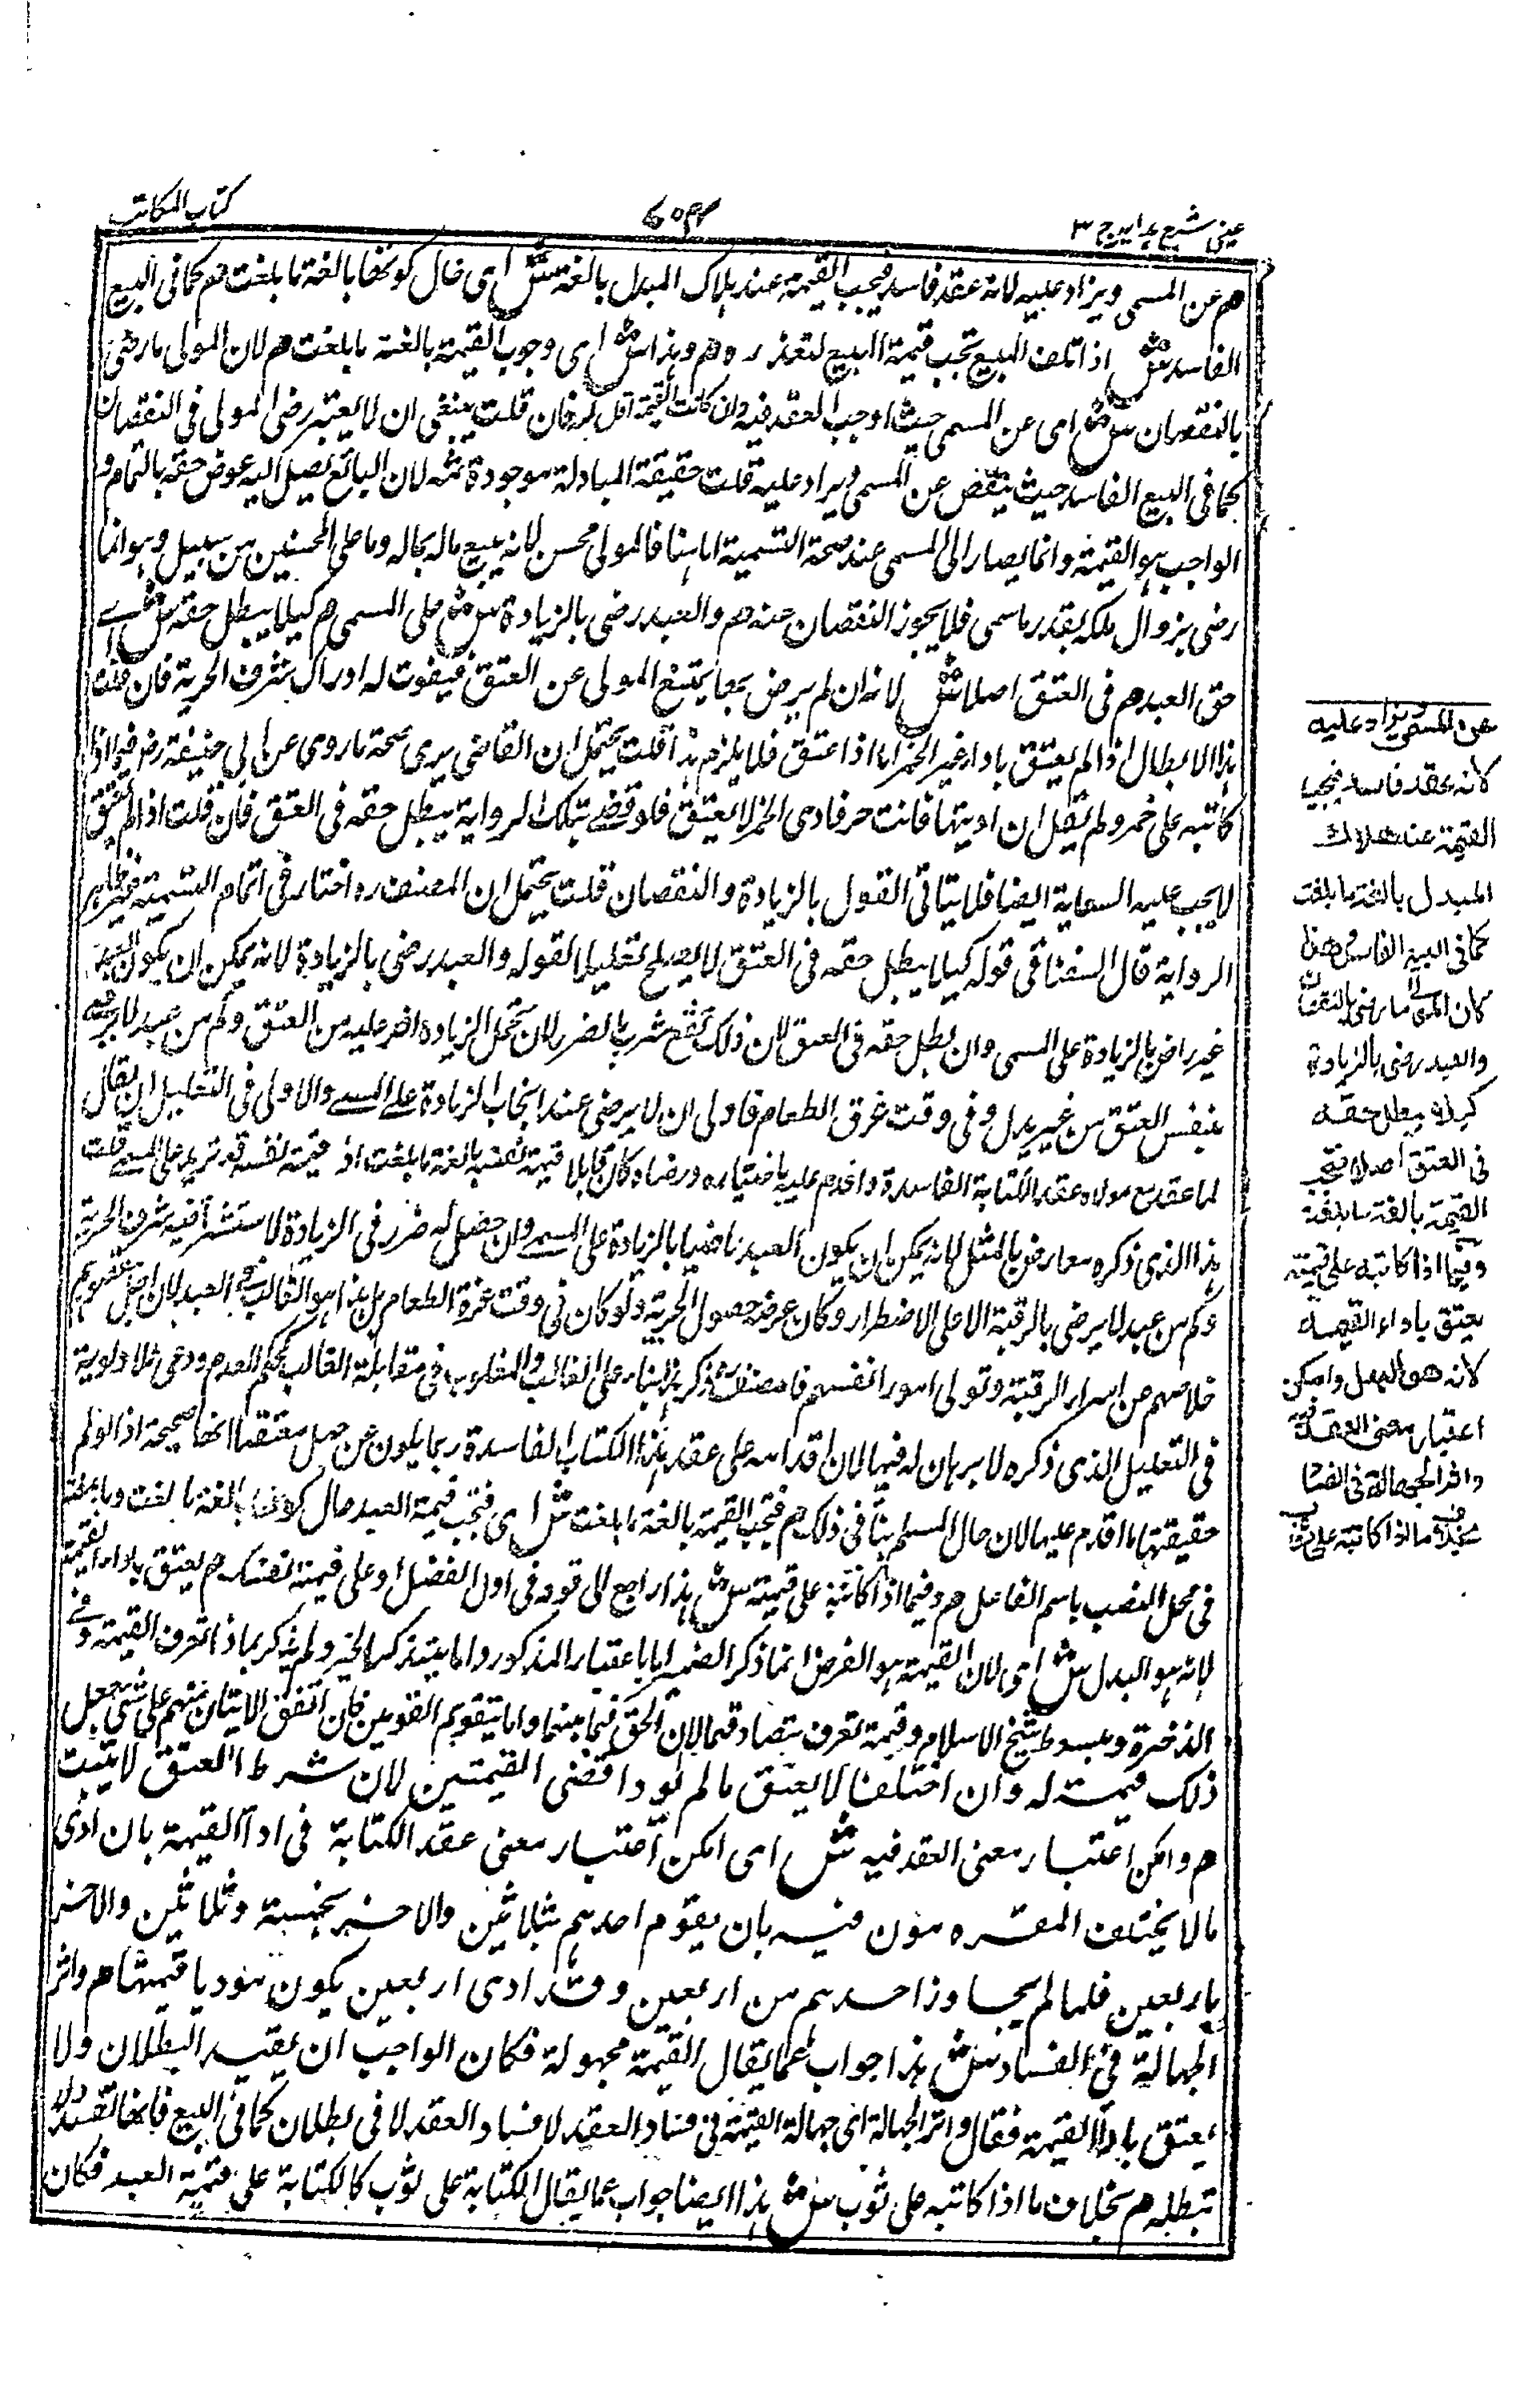 عينى شرح هدايه ج ٣
كتاب المكاتب
هم عن المسمى ويزاد عليه لانه عقد فاسد فيجب القيمة عند هلاك المبدل بالغة ش اى حال كونها بالغة ما بلغت هم كما فى البيع
الفاسد ش اذا تلف المبيع تجب قيمة المبيع لتعذر رده هم وهذا ش اى وجوب القيمة بالغة ما بلغت هم لان المولى ما رضى
بالنقصان ش اى عن المسمى حيث اوجب العقد فيه وان كانت القيمة اقل فان قلت ينبغى ان لا يعتبر رضى المولى فى النقصان
كما فى البيع الفاسد حيث ينقص عن المسمى ويزاد عليه قلت حقيقة المبادلة موجودة ثمه لان البائع يصل اليه عوض حقه بالتمام و
الواجب هو القيمة وانما يصار الى المسمى عند صحة التسمية اما هنا فالمولى محسن لانه يبيع ماله بماله وما على المحسنين من سبيل وهو انما
رضى بزوال ملكه بقدر ما سمى فلا يجوز النقصان عنه هم والعبد رضى بالزيادة ش على المسمى هم كيلا يبطل حقه ش اے
حق العبد هم فى العتق اصلا ش لانه ان لم يرض بها يمتنع المولى عن العتق فيفوت له ادراك شرف الحرية فان قلت
هذا الابطال اذا لم يعتق باداء غير الخمر اما اذا عتق فلا يلزم هذا قلت يحتمل ان القاضى يرى صحة ما روى عن ابى حنيفة رض فيما اذا
كاتبه على خمر ولم يقل ان اديتها فانت حر فادى الخمر لا يعتق فلو قضے بتلك الرواية يبطل حقه فى العتق فان قلت اذا لم يعتق
لا يجب عليه السعاية ايضا فلا يتاتى القول بالزيادة والنقصان قلت يحتمل ان المصنف ره اختار فى اتمام التسمية غير ظاهر
الرواية قال السغناقى قوله كيلا يبطل حقه فى العتق لا يصلح تعليلا لقوله والعبد رضى بالزيادة لانه يمكن ان يكون العبد
غير راض بالزيادة على المسمى وان بطل حقه فى العتق لان ذلك نفع مشرب بالضرر لان تحمل الزيادة اضر عليه من العتق وكم من عبد لا يرضى
بنفس العتق من غير بدل وفى وقت عرق الطعام فاولى ان لا يرضى عند ايجاب الزيادة على المسمے والاولى فى التعليل ان يقال
لما عقد مع مولاه عقد الكتابة الفاسدة واقدم عليه باختياره ورضاه كان قابلا قيمة نفسه بالغة ما بلغت اذ قيمة نفسه قد تزيد على المسمے قلت
هذا الذى ذكره معارض بالمثل لانه يمكن ان يكون العبد راضيا بالزيادة على المسمے وان حصل له ضرر فى الزيادة لاستشرافيه شرف الحرية
وكم من عبد لا يرضى بالرقبة الا على الاضطرار وكان عرضه حصول الحرية ولو كان فى وقت عزة الطعام بل هذا هو الغالب فى العبد لان اصل مقصودهم
خلاصهم من اسار الرقبة وتولى امور انفسهم فالمصنف ره ذكر هذا بناء على الغالب والمغلوب فى مقابلة الغالب كحكم العدم ودعوى الاولوية
فى التعليل الذى ذكره لا برهان له فيها لان اقدامه على عقد هذا الكتابة الفاسدة ربما يكون عن جهل معتقدا انها صحيحة اذ لو لم
حقيقتها ما اقدم عليها لان حال المسلم ينافى ذلك هم فتجب القيمة بالغة ما بلغت ش اى فتجب قيمة العبد حال كونها بالغة ما بلغت وبالغة
فى محل النصب باسم الفاعل هم وفيما اذا كاتبه على قيمته ش هذا راجع الى قوله فى اول الفصل او على قيمة نفسك هم يعتق باداء القيمة
لانه هو البدل ش اى لان القيمة هو الفرض انما ذكر الضمير اما باعتبار المذكور واما بتذكير الخبر ولم يذكر بماذا تعرف القيمة وفے
الذخيرة ومبسوط شيخ الاسلام وقيمة تعرف بتصادقهما لان الحق فيما بينهما واما بتقويم المقومين فان اتفق الاثنان منهم على شئ يجعل
ذلك قيمته له وان اختلفا لا يعتق ما لم يود اقصى القيمتين لان شرط العتق لا يثبت
هم وامكن اعتبار معنى العقد فيه ش اى امكن اعتبار معنى عقد الكتابة فى اداء القيمة بان ادى
ما لا يختلف المقومون فيه بان يقوم احدهم بثلاثين والاخر بخمسة وثلاثين والاخر
باربعين فلما لم يجاوز احدهم من اربعين وقد ادى اربعين يكون موديا قيمتها هم واثر
الجهالة فى الفساد ش هذا جواب عما يقال القيمة مجهولة فكان الواجب ان يفيد البطلان ولا
يعتق باداء القيمة فقال واثر الجهالة اى جهالة القيمة فى فساد العقد لا فساد العقد لا فى بطلان كما فى البيع فانها تفسده ولا
تبطله هم بخلاف ما اذا كاتبه على ثوب ش هذا ايضا جواب عما يقال الكتابة على ثوب كالكتابة على قيمة العبد فكان
عن المسمى ويزاد عليه
لانه عقد فاسد فيجب
القيمة عند هلاك
المبدل بالغة ما بلغت
كما فى البيع الفاسد وهذا
لان المولى ما رضى بالنقصان
والعبد رضى بالزيادة
كيلا يبطل حقه
فى العتق اصلا فتجب
القيمة بالغة ما بلغت
وفيما اذا كاتبه على قيمته
يعتق باداء القيمة
لانه هو البدل وامكن
اعتبار معنى العقد فيه
واثر الجهالة فى الفساد
بخلاف ما اذا كاتبه على ثوب